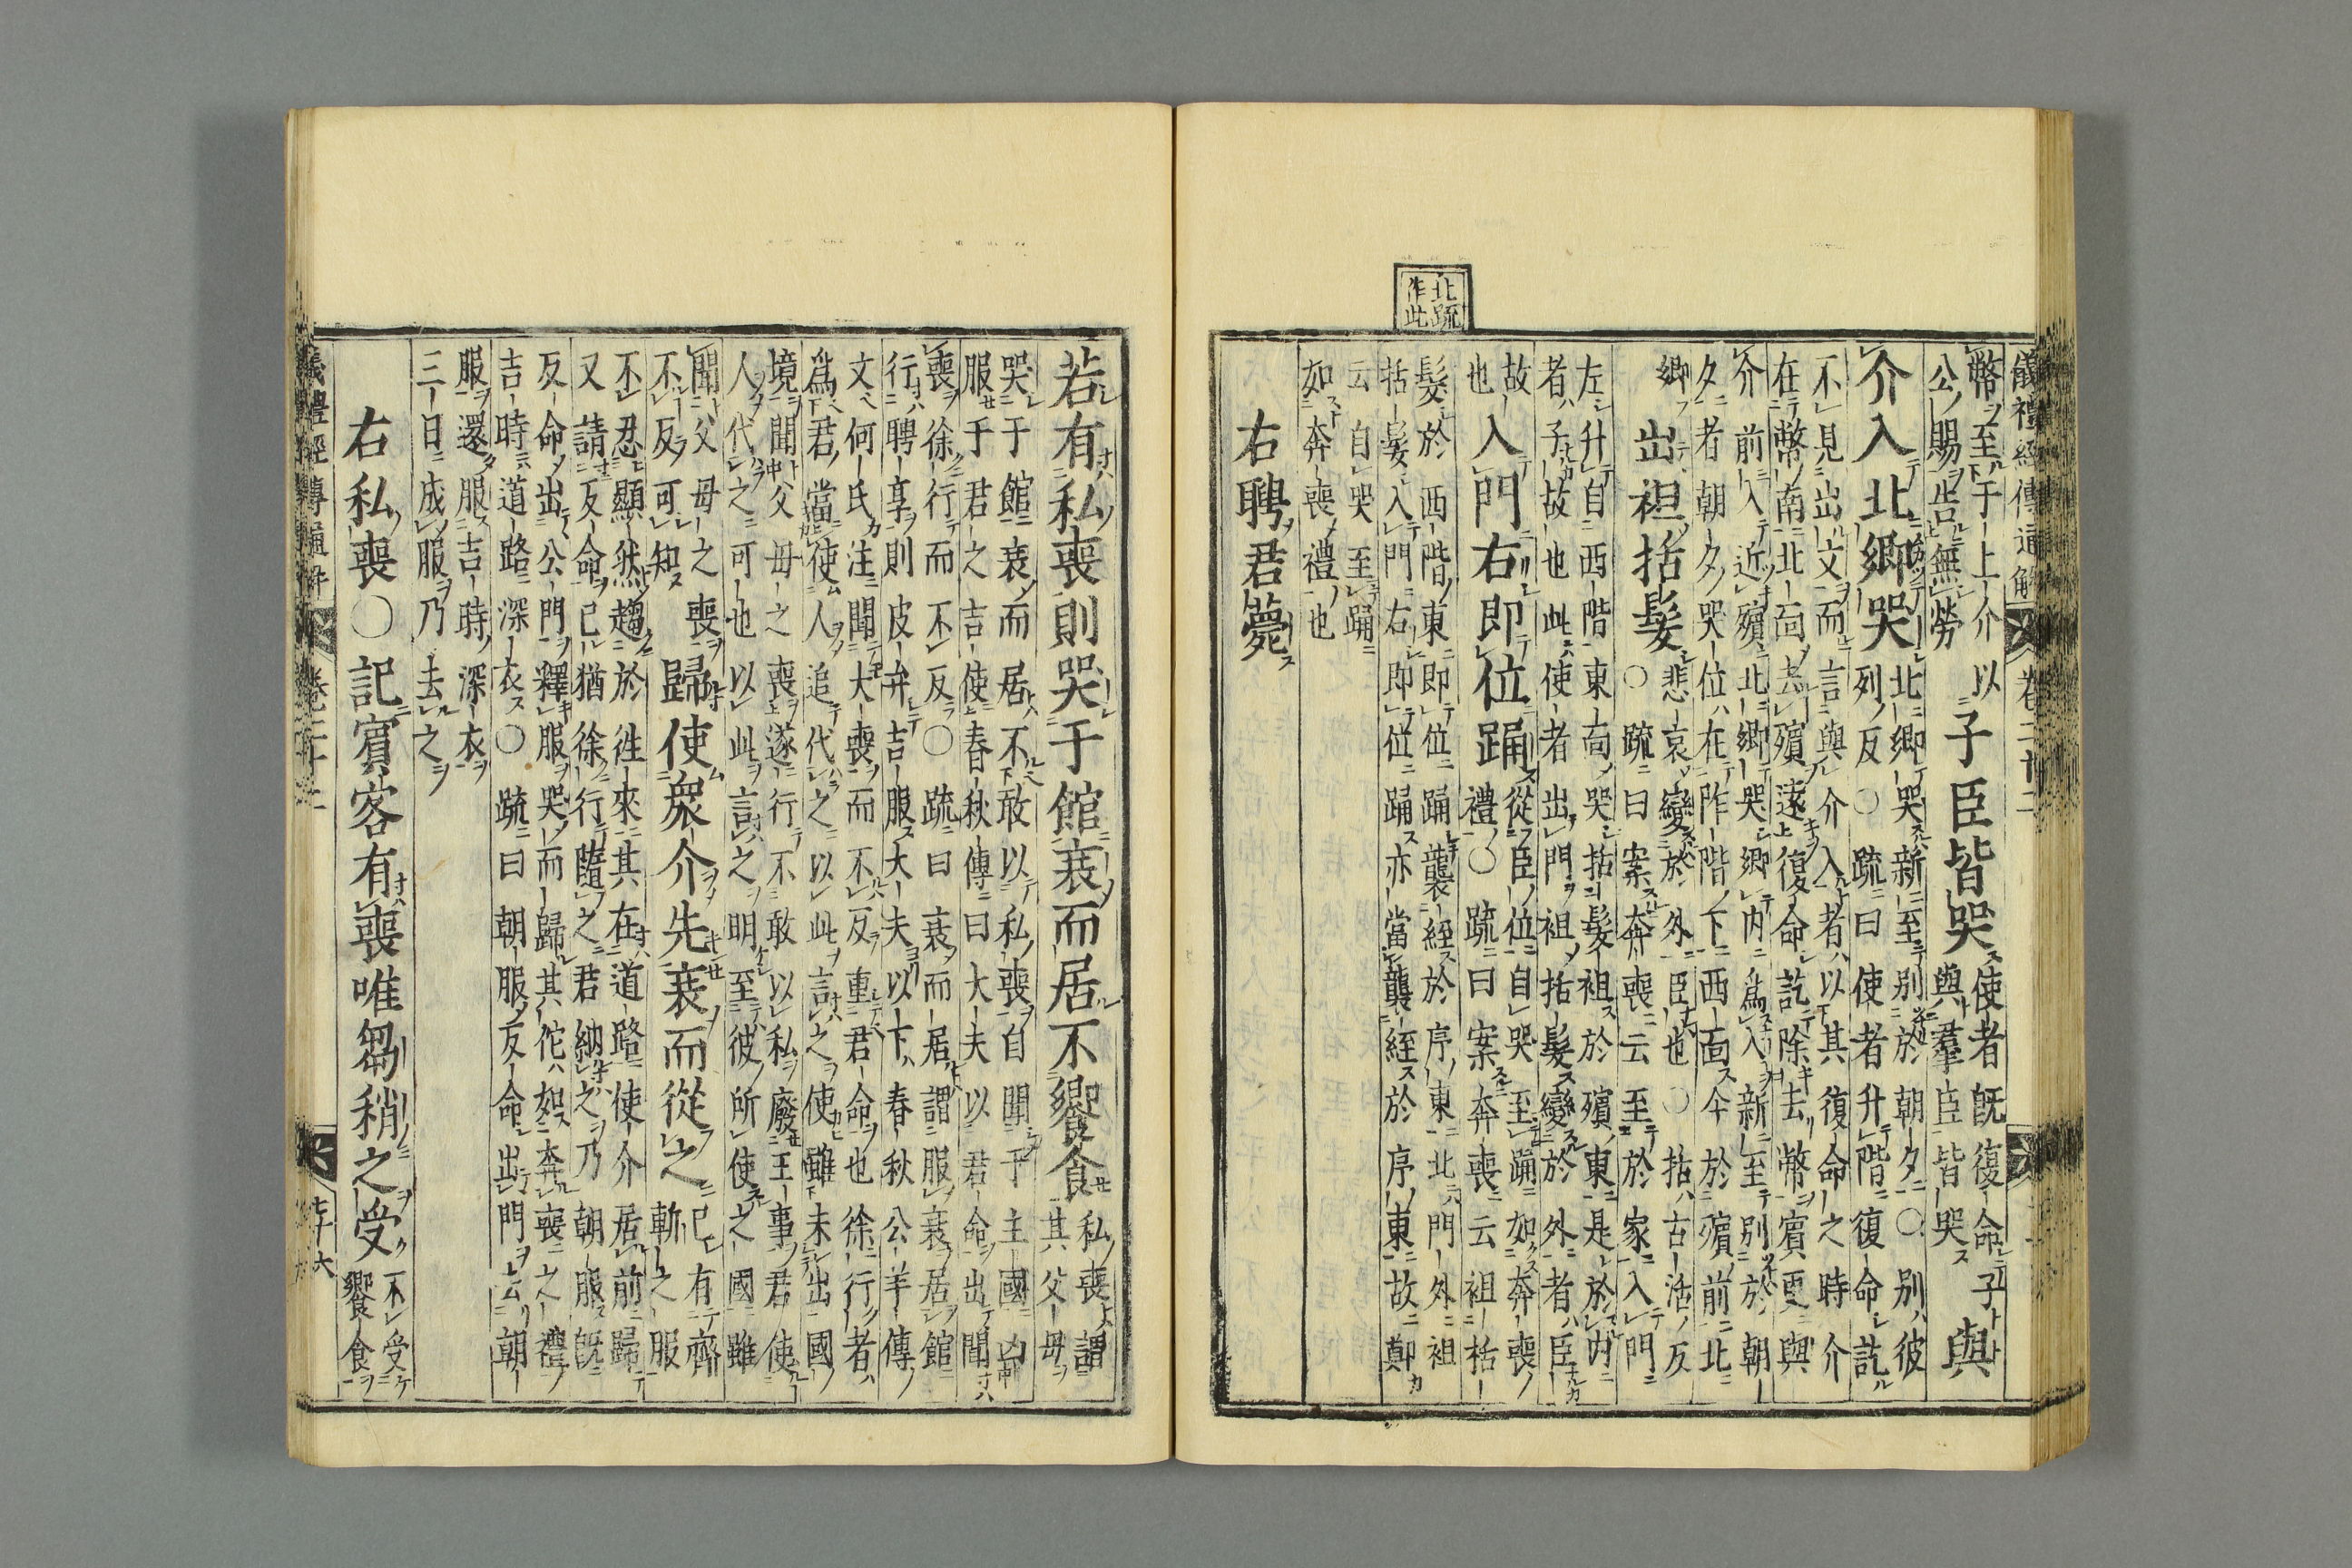 儀禮經傳通解 卷二十二
幣至于上介以
公賜告無勞
子臣皆哭
使者既復命子
與羣臣皆哭
與
介入北郷哭
北郷哭新至別於朝夕○別彼
列反○疏曰使者升階復命訖
不見出文而言與介入者以其復命之時介
在幣南北面去殯遠復命訖除去幣賓更與
介前入近殯北郷哭郷内爲入新至別於朝
夕者朝夕哭位在阼階下西面今於殯前北
郷
出袒括髮
悲哀變於外臣也○括古活反
○疏曰案奔喪云至於家入門
左升自西階東面哭括髮袒於殯東是於内
者子故也此使者出門袒括髮變於外者臣
故
也
入門右即位踊
從臣位自哭至踊如奔喪
禮○疏曰案奔喪云袒括
髮於西階東即位踊襲絰於序東北門外袒
括髮入門右即位踊亦當襲絰於序東故鄭
云自哭至踊
如奔喪禮也
右聘君薨
北疏
作此
若有私喪則哭于館衰而居不饗食
私喪謂
其父母
哭于館衰而居不敢以私喪自聞于主國凶
服于君之吉使春秋傳曰大夫以君命出聞
喪徐行而不反○疏曰衰而居謂服衰居館
行聘享則皮弁吉服大夫以下春秋公羊傳
文何氏注聞大喪而不反重君命也徐行者
爲君當使人追代之以此言之使雖未出國
境聞父母之喪遂行不敢以私廢王事君使
人代之可也以此言之明至彼所使之國雖
聞父母之喪
不反可知
歸使衆介先衰而從之
己有齊
斬之服
不忍顯然趨於往來其在道路使介居前歸
又請反命己猶徐行隨之君納之乃朝服既
反命出公門釋服哭而歸其佗如奔喪之禮
吉時道路深衣○疏曰朝服反命出門去朝
服還服吉時深衣
三日成服乃去之
右私喪○記賓客有喪唯芻稍之受
不受
饗食
儀禮經傳通解 卷二十二 七十六